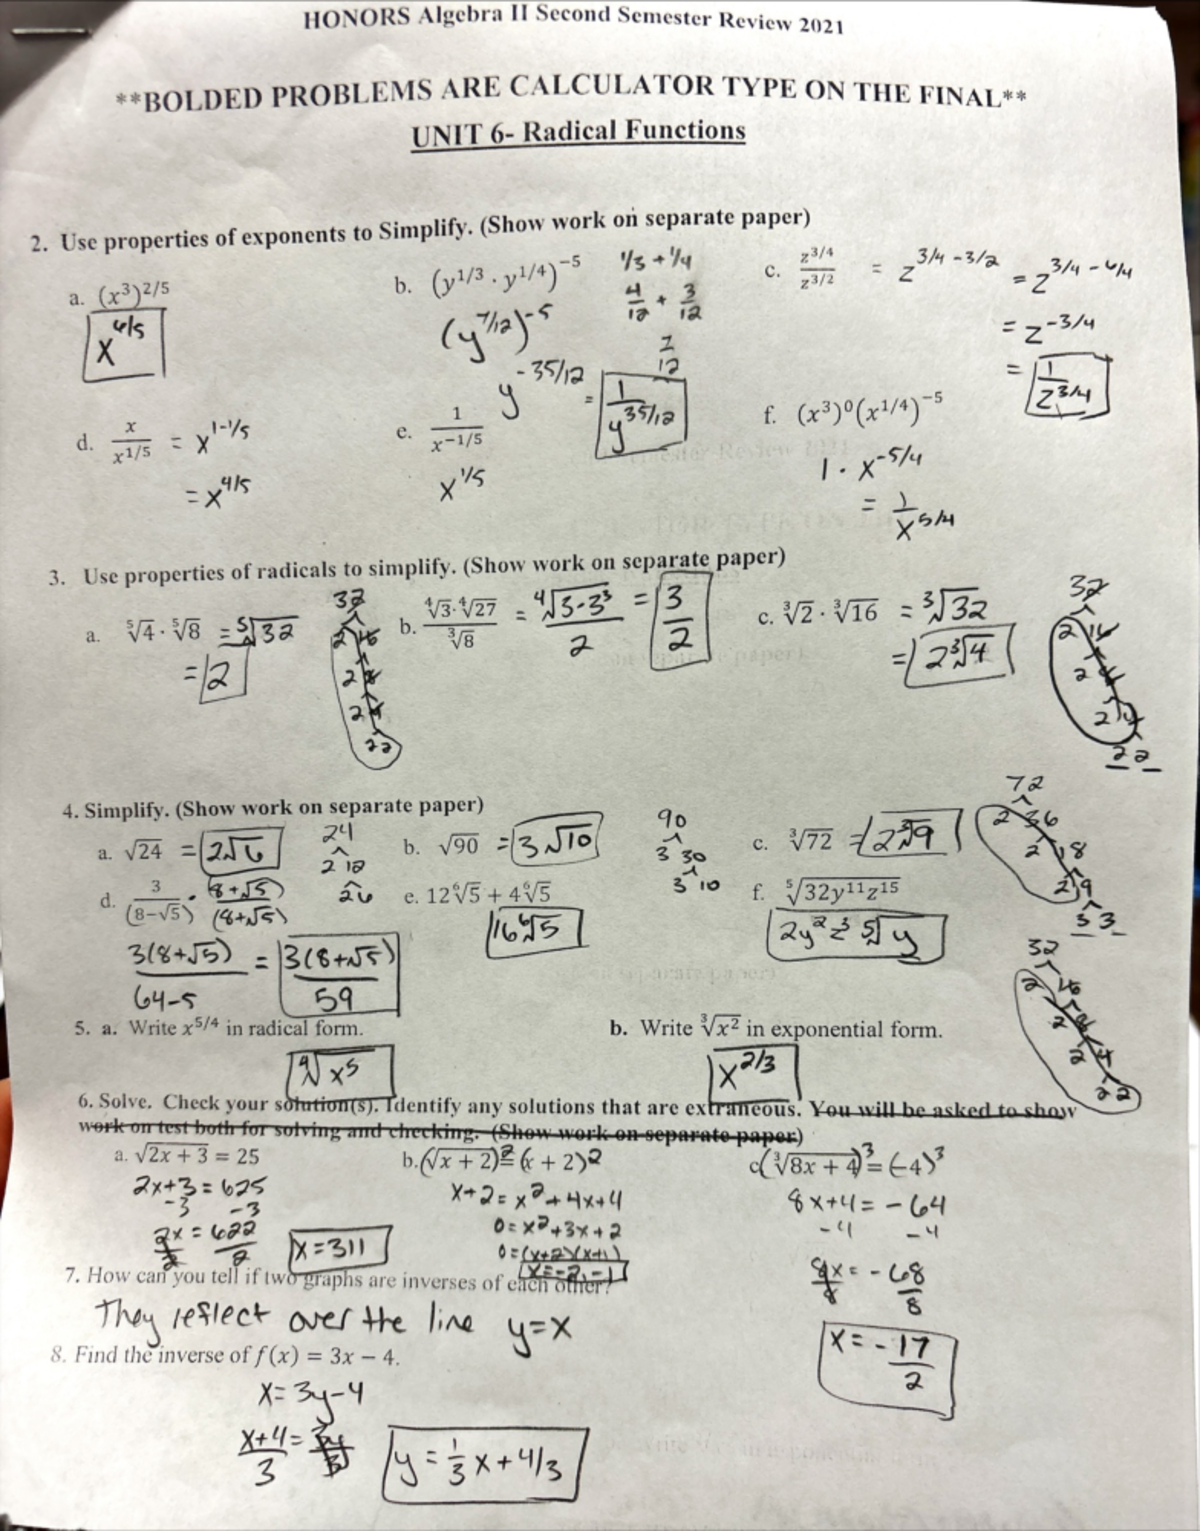 HONORS Algebra II Second Semester Review 2021
**BOLDED PROBLEMS ARE CALCULATOR TYPE ON THE FINAL**
UNIT 6- Radical Functions
2. Use properties of exponents to Simplify. (Show work on separate paper)
a. (x³)^{2/5}
x^{6/5}
b. (y^{1/3} · y^{1/4})^{-5}
1/3 + 1/4
4/12 + 3/12
7/12
(y^{7/12})^{-5}
y^{-35/12} = 1/y^{35/12}
c. z^{3/4}/z^{3/2} = z^{3/4 - 3/2} = z^{3/4 - 6/4}
= z^{-3/4}
= 1/z^{3/4}
d. x/x^{1/5} = x^{1-1/5}
= x^{4/5}
e. 1/x^{-1/5}
x^{1/5}
f. (x³)⁰(x^{1/4})^{-5}
1 · x^{-5/4}
= 1/x^{5/4}
3. Use properties of radicals to simplify. (Show work on separate paper)
a. ⁵√4 · ⁵√8 = ⁵√32
= 2
32
2 16
2 8
2 4
2 2
b. ⁴√3·⁴√27/³√8 = ⁴√3·3³/2 = 3/2
c. ³√2 · ³√16 = ³√32
= 2³√4
32
2 16
2 8
2 4
2 2
4. Simplify. (Show work on separate paper)
a. √24 = 2√6
24
2 12
2 6
b. √90 = 3√10
90
3 30
3 10
c. ³√72 = 2³√9
72
2 36
2 18
2 9
3 3
d. 3/(8−√5) · (8+√5)/(8+√5)
3(8+√5)/64-5 = 3(8+√5)/59
e. 12⁶√5 + 4⁶√5
16⁶√5
f. ⁵√32y¹¹z¹⁵
2y²z³ ⁵√y
32
2 16
2 8
2 4
2 2
5. a. Write x^{5/4} in radical form.
⁴√x⁵
b. Write ³√x² in exponential form.
x^{2/3}
6. Solve. Check your solution(s). Identify any solutions that are extraneous. You will be asked to show
work on test both for solving and checking. (Show work on separate paper)
a. √2x + 3 = 25
2x+3 = 625
-3 -3
2x/2 = 622/2
x=311
b. (√x + 2)² = (x + 2)²
x+2 = x²+4x+4
0=x²+3x+2
0=(x+2)(x+1)
x=-2,-1
c. (³√8x + 4)³ = (−4)³
8x+4 = -64
-4 -4
8x/8 = -68/8
x= -17/2
7. How can you tell if two graphs are inverses of each other?
They reflect over the line y=x
8. Find the inverse of f(x) = 3x − 4.
x= 3y-4
x+4/3 = 3y/3
y = 1/3 x + 4/3